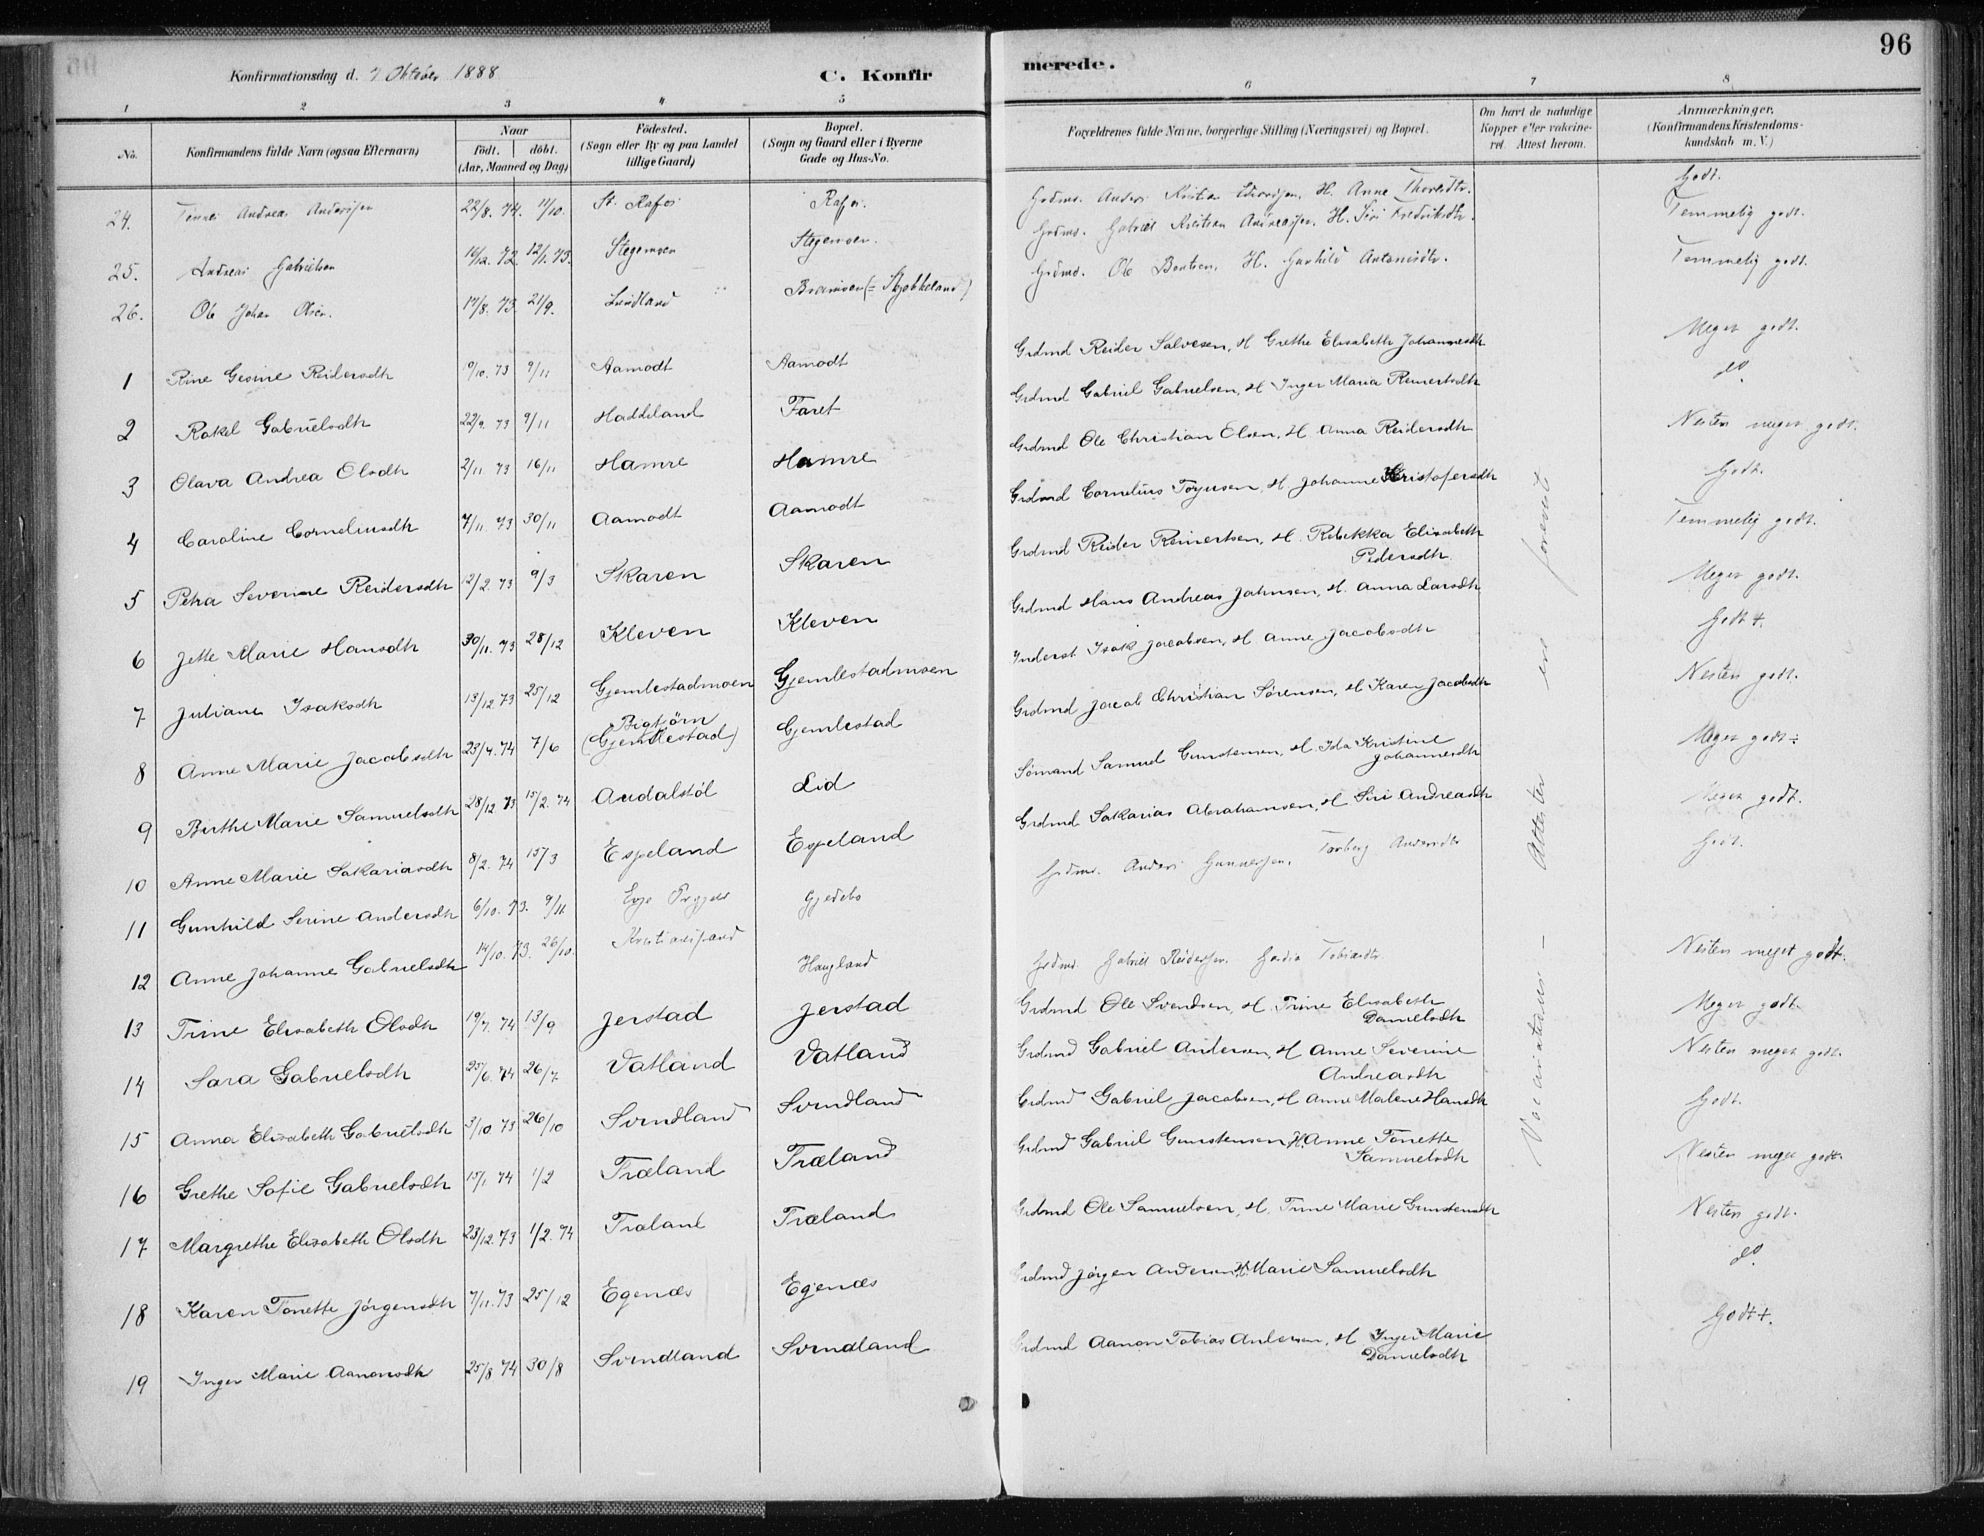 96
Konfirmationsdag d. 7 Oktober 1888
C. Konfirmerede.
1 2 3 4 5 6 7 8
No.
Konfirmandens fulde Navn (ogsaa Efternavn)
Naar
födt. döbt.
(Aar, Maaned og Dag)
Födested.
(Sogn eller By og paa Landet
tillige Gaard)
Bopæl.
(Sogn og Gaard eller i Byerne
Gade og Hus-No.
Forældrenes fulde Navne, borgerlige Stilling (Næringsvei) og Bopæl.
Om havt de naturlige
Kopper eller vakcine-
ret. Attest herom.
Anmærkninger.
(Konfirmandens Kristendoms-
kundskab m. V.)
24. Andreas Andersen 22/8. 74. 11/10. St. Rafos Rafos. Grdmd. Anders Kristian H. Anne Godt.
25. Andreas Gabrielsen 16/12. 72. 12/1. 73. Stegemoen Stegemoen. Grdmd. Gabriel Kristian Andreassen. H. Siri Fredriksdtr. Temmelig godt.
26. Ole Johan Olsen. 17/8. 73. 21/9. Lindland (= Skjekkeland) Grdmd. Ole Bentsen. H. Gunhild Antonisdtr. Temmelig godt.
1 Rine Gesine Reidersdtr 9/10. 73 9/11 Aamodt Aamodt Grdmd Reider Salvesen, H Grethe Elisabeth Johannesdtr Meget godt.
2 Rakel Gabrielsdtr 22/9. 73 9/11 Haddeland Faret Grdmd Gabriel Gabrielsen, H Inger Maria Reinertsdtr do.
3 Olava Andrea Olsdtr 2/11. 73 16/11 Hamre Hamre Grdmd Ole Christian Olsen, H Anna Reidersdtr Nesten meget godt.
4 Caroline Corneliusdtr 7/11. 73 30/11 Aamodt Aamodt Grdmd Cornelius Torjusen, H Johanne Kristofersdtr Godt.
5 Petra Severine Reidersdtr 12/2. 73 9/3 Skaren Skaren Grdmd Reider Reinertsen, H. Rebekka Elisabeth
Pedersdtr. Temmelig godt.
6 Jette Marie Hansdtr 30/11. 73 28/12 Kleven Kleven Grdmd Hans Andreas Jahnsen, H. Anna Larsdtr Meget godt.
7 Juliane Isaksdtr 13/12 73 25/12 Gjemlestadmoen Gjemlestadmoen Inderst Isak Jacobsen, H Anne Jacobsdtr Godt+.
8 Anne Marie Jacobsdtr 23/4. 74 7/6 Bigtjörn
(Gjemlestad) Gjemlestad Grdmd Jacob Christian Sörensen, H Karen Jacobsdtr Nesten godt.
9 Birthe Marie Samuelsdtr 28/12 73 15/2. 74 Audalstöl Lid Sömand Samuel Gunstensen, H. Ida Kristine
Johannesdtr Meget godt÷
10 Anne Marie Sakariasdtr 8/2. 74 15/3 Espeland Espeland Grdmd Sakarias Abrahamsen, H Siri Andreasdtr Meget godt.
11 Gunhild Serine Andersdtr 6/10. 73. 9/11 Evje Prgjeld Gjedebo Grdmd. Anders Gunnersen, Torborg Andersdtr Godt.
12 Anne Johanne Gabrielsdtr 14/10. 73. 26/10. Kristianssand Haugland Grdmd Gabriel Reidersen Tobiasdtr. Nesten meget godt.
13 Trine Elisabeth Olsdtr 19/7. 74 13/9 Jerstad Jerstad Grdmd Ole Svendsen, H. Trine Elisabeth
Danielsdtr Meget godt.
14 Sara Gabrielsdtr 25/6. 74 26/7 Vatland Vatland Grdmd Gabriel Andersen, H Anne Severine
Andreasdtr Nesten meget godt.
15 Anna Elisabeth Gabrielsdtr 3/10 73 26/10 Svindland Svindland Grdmd Gabriel Jacobsen, H Anne Malene Hansdtr Godt.
16 Grethe Sofie Gabrielsdtr 15/1 74 1/2 Træland Træland Grdmd Gabriel Gunstensen, H. Anne Tonette
Samuelsdtr Nesten meget godt.
17 Margrethe Elisabeth Olsdtr 23/12. 73 1/2. 74 Træland Træland Grdmd Ole Samuelsen, H. Trine Marie Gunstensdtr Nesten godt.
18 Karen Tonette Jörgensdtr 7/11. 73 25/12 Egenæs Egenæs Grdmd Jörgen Andersen H. Marie Samuelsdtr do.
19 Inger Marie Aanonsdtr 25/8 74 30/8 Svindland Svindland Grdmd Aanon Tobias Andersen, H Inger Marie
Danielsdtr Godt+.
Vaccinations- Attester ere foreviste